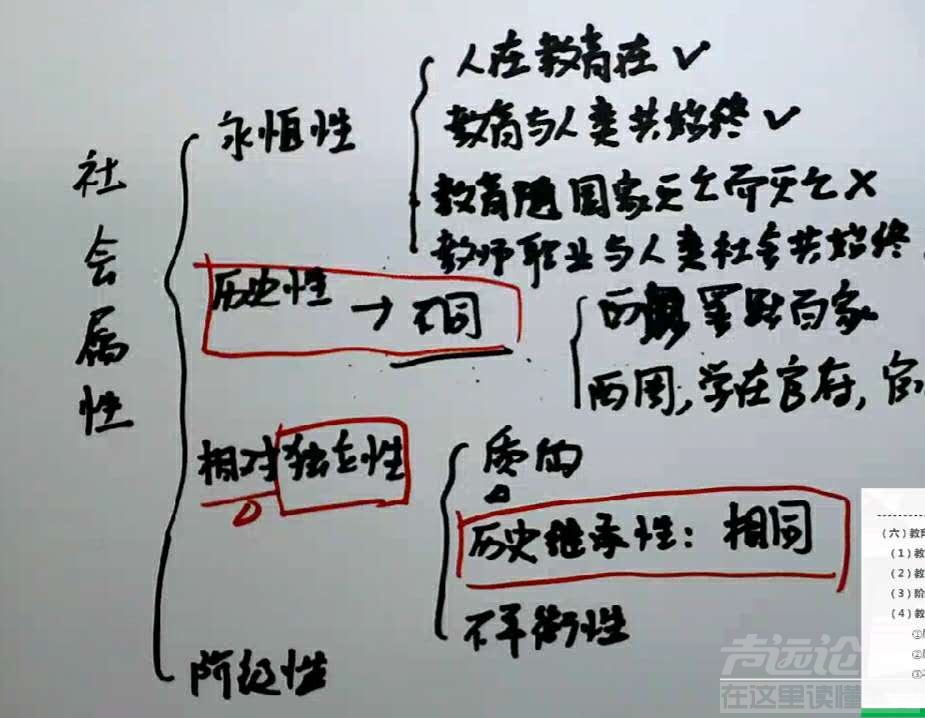 社会属性
永恒性
人在教育在 ✓
教育与人类共始终 ✓
教育随国家灭亡而灭亡 ×
教师职业与人类社会共始终
历史性 → 不同
罢黜百家
西周,学在官府,官
相对独立性
质的
历史继承性:相同
不平衡性
阶级性
(六)教育
(1)教
(2)教
(3)阶
(4)教
①
②
③
声远论
在这里读懂